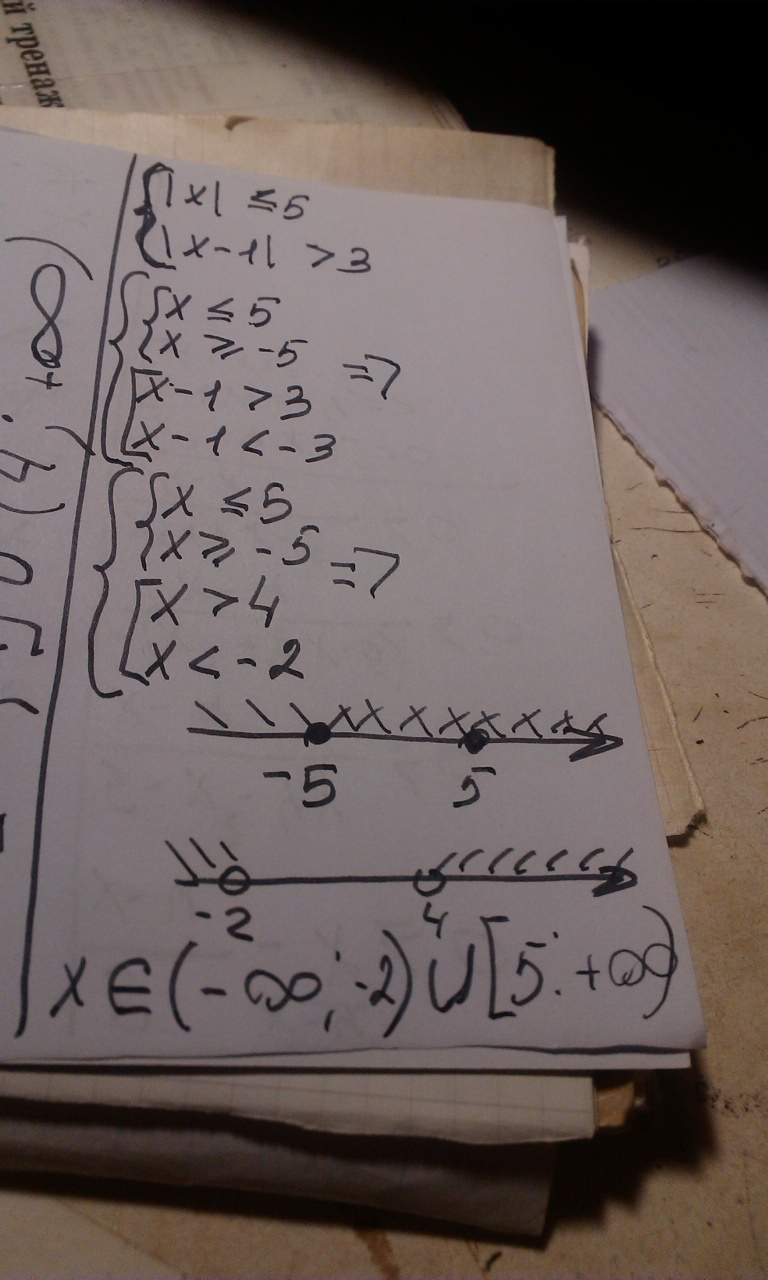 й тренаж
{|x| ≤ 5
|x-1| > 3
{{x ≤ 5
x ≥ -5
[x-1 > 3
x-1 < -3
=>
{{x ≤ 5
x ≥ -5
[x > 4
x < -2
=>
-5 5
-2 4
x ∈ (-∞; -2) ∪ [5; +∞)
(4; +∞)